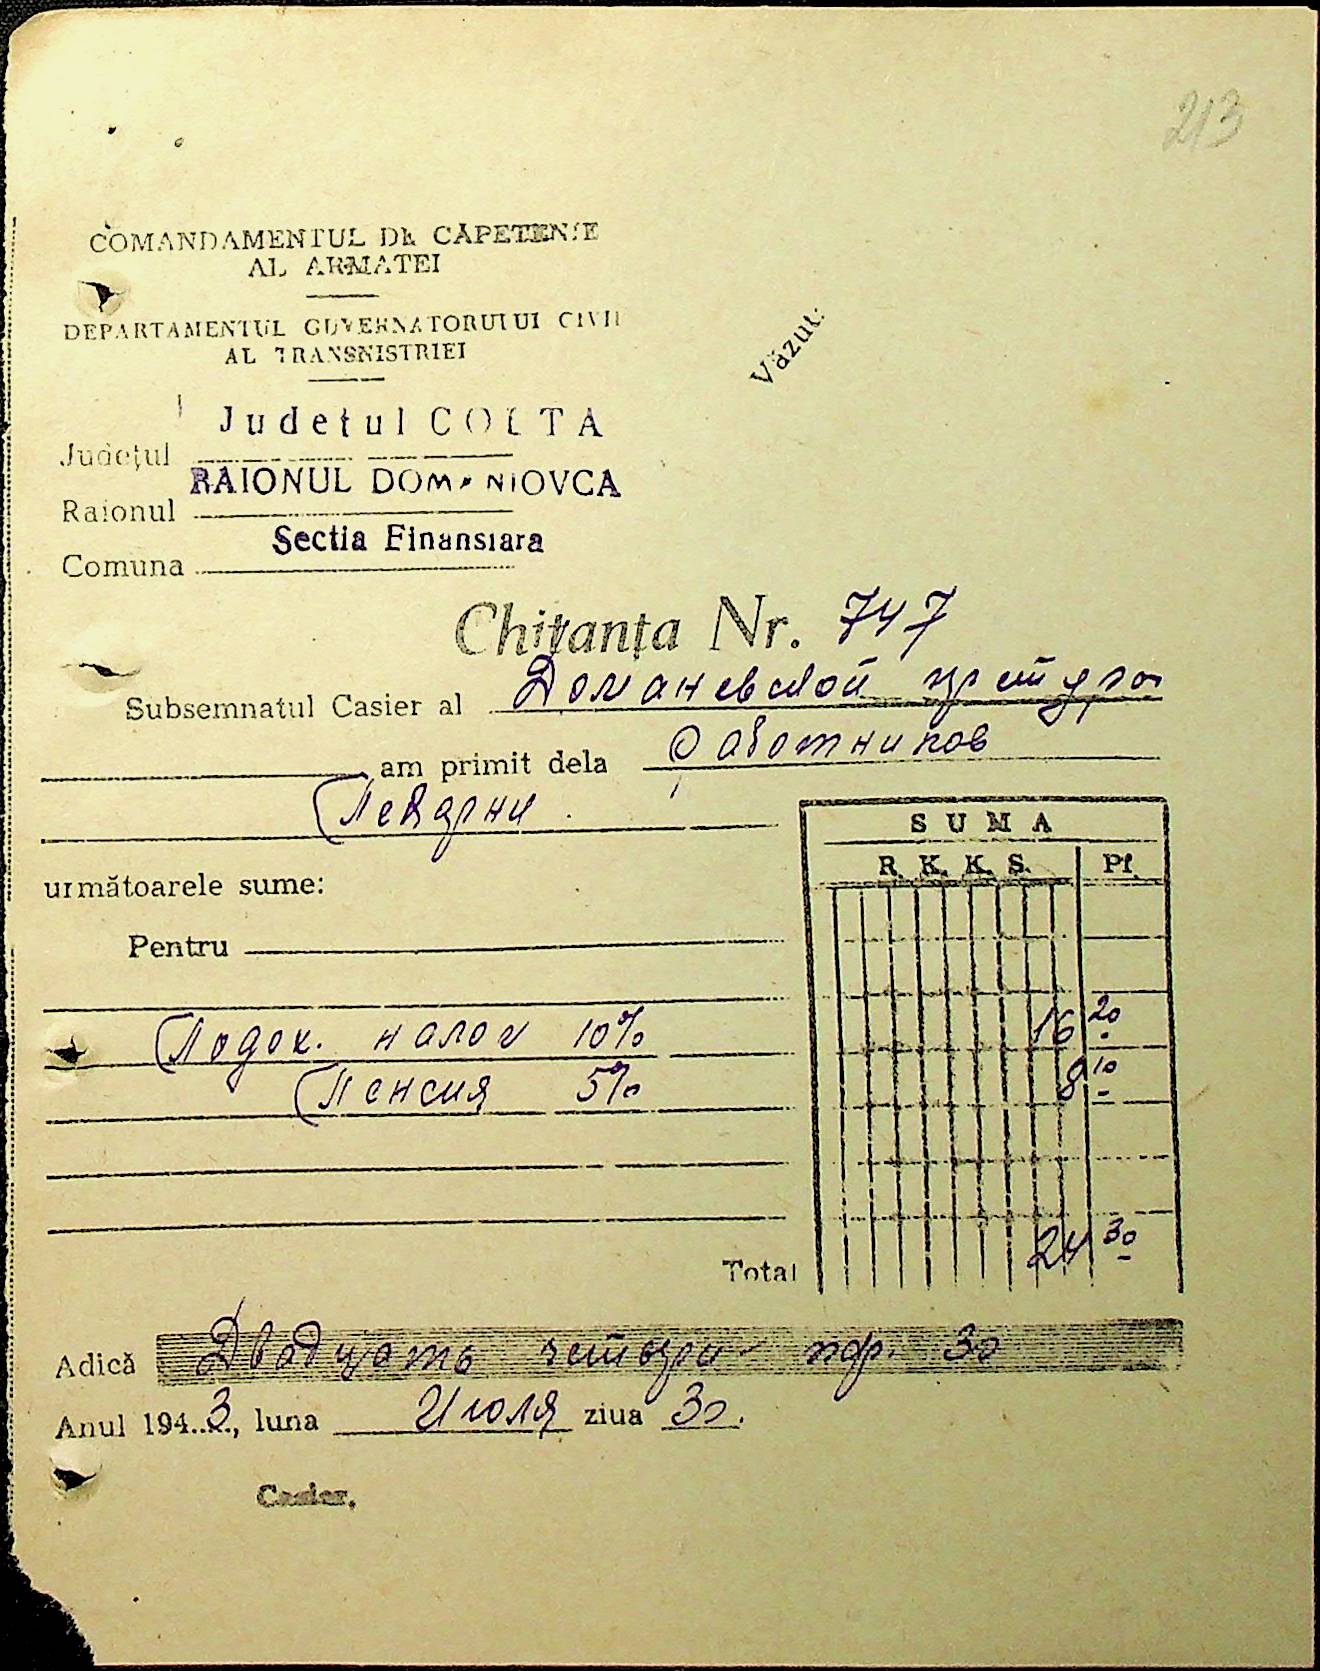 213
COMANDAMENTUL DE CĂPETENIE
AL ARMATEI
DEPARTAMENTUL GUVERNATORULUI CIVIL
AL TRANSNISTRIEI
Văzut:
Judetul COLTA
Județul
RAIONUL DOMANIOVCA
Raionul
Sectia Finansiara
Comuna
Chitanța Nr. 747
Subsemnatul Casier al Доманевской
am primit dela работников
Пекарни
următoarele sume:
SUMA
R. K. K. S. Pf.
Pentru
Подох. налог 10% 16 20
Пенсия 5% 8 10
Total 24 30
Adică Двадцать четыре пф. 30
Anul 1943, luna Июля ziua 30.
Casier,